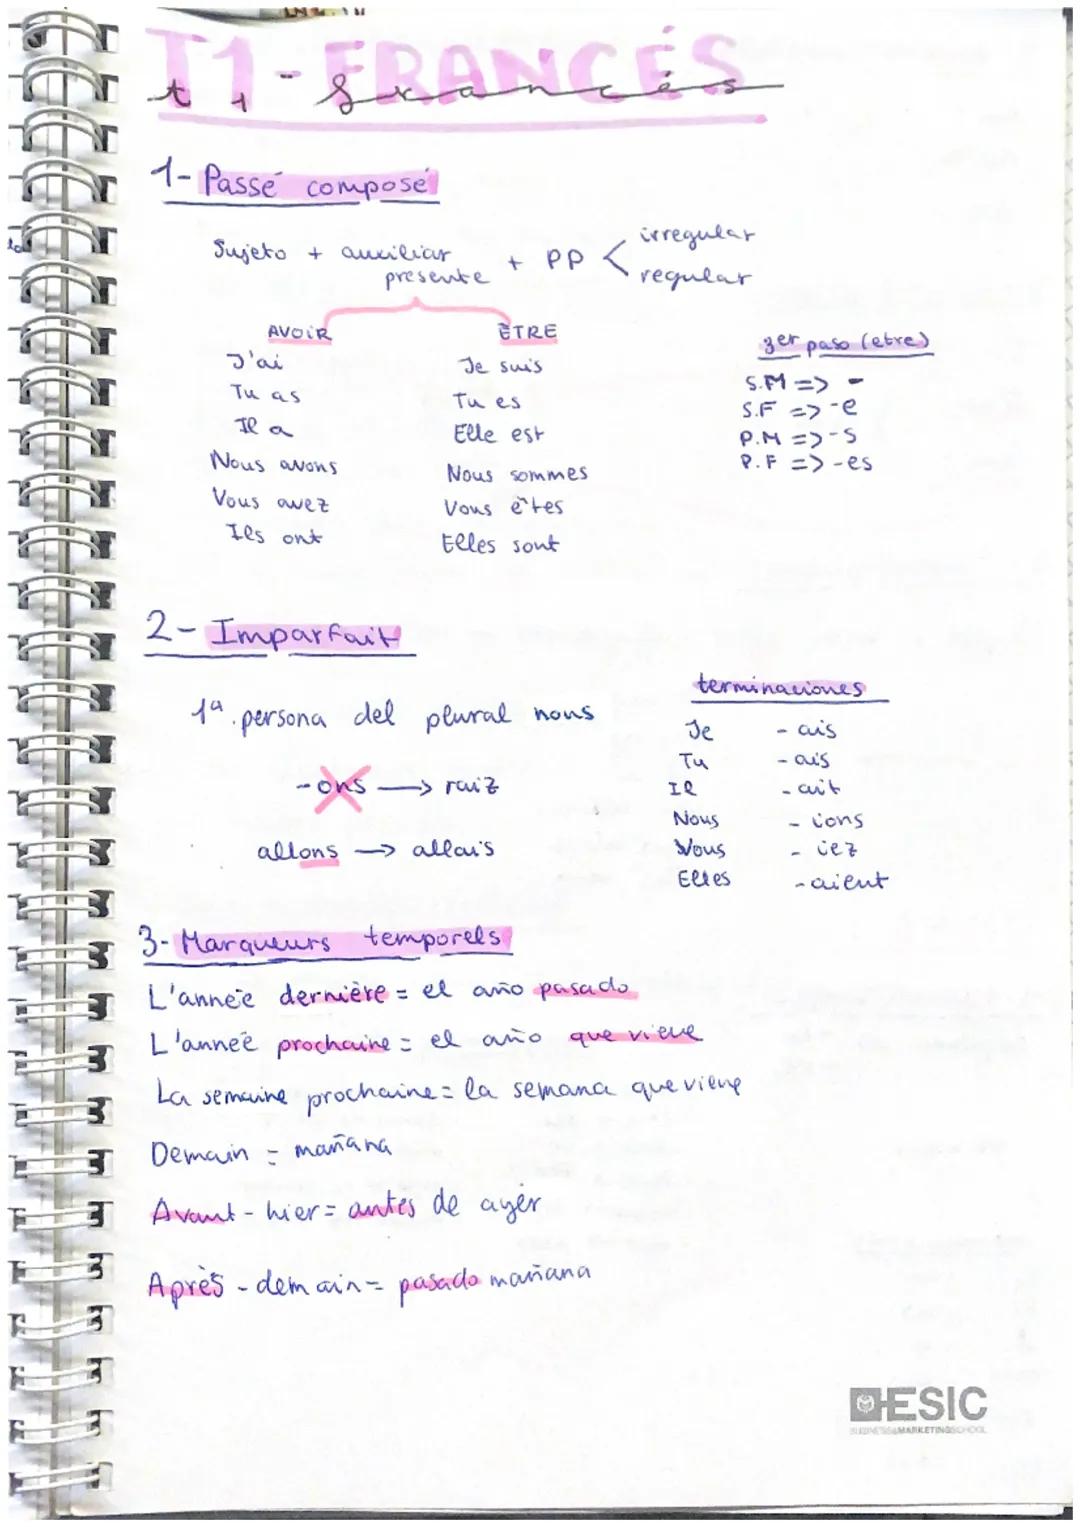 T1-FRANCÉS
t1-francés
1- Passé composé
Sujeto + auxiliar presente + PP < irregular
regular
AVOIR
J'ai
Tu as
Il a
Nous avons
Vous avez
Ils ont
ÊTRE
Je suis
Tu es
Elle est
Nous sommes
Vous êtes
Elles sont
3er paso (etre)
S.M => -
S.F => -e
P.M => -s
P.F => -es
2- Imparfait
1ª persona del plural nous
-ons → raiz
allons → allais
terminaciones
Je - ais
Tu - ais
Il - ait
Nous - ions
Vous - iez
Elles - aient
3- Marqueurs temporels
L'année dernière = el año pasado
L'année prochaine = el año que viene
La semaine prochaine = la semana que viene
Demain = mañana
Avant - hier = antes de ayer
Après - demain = pasado mañana
ESIC
BUSINESS&MARKETINGSCHOOL